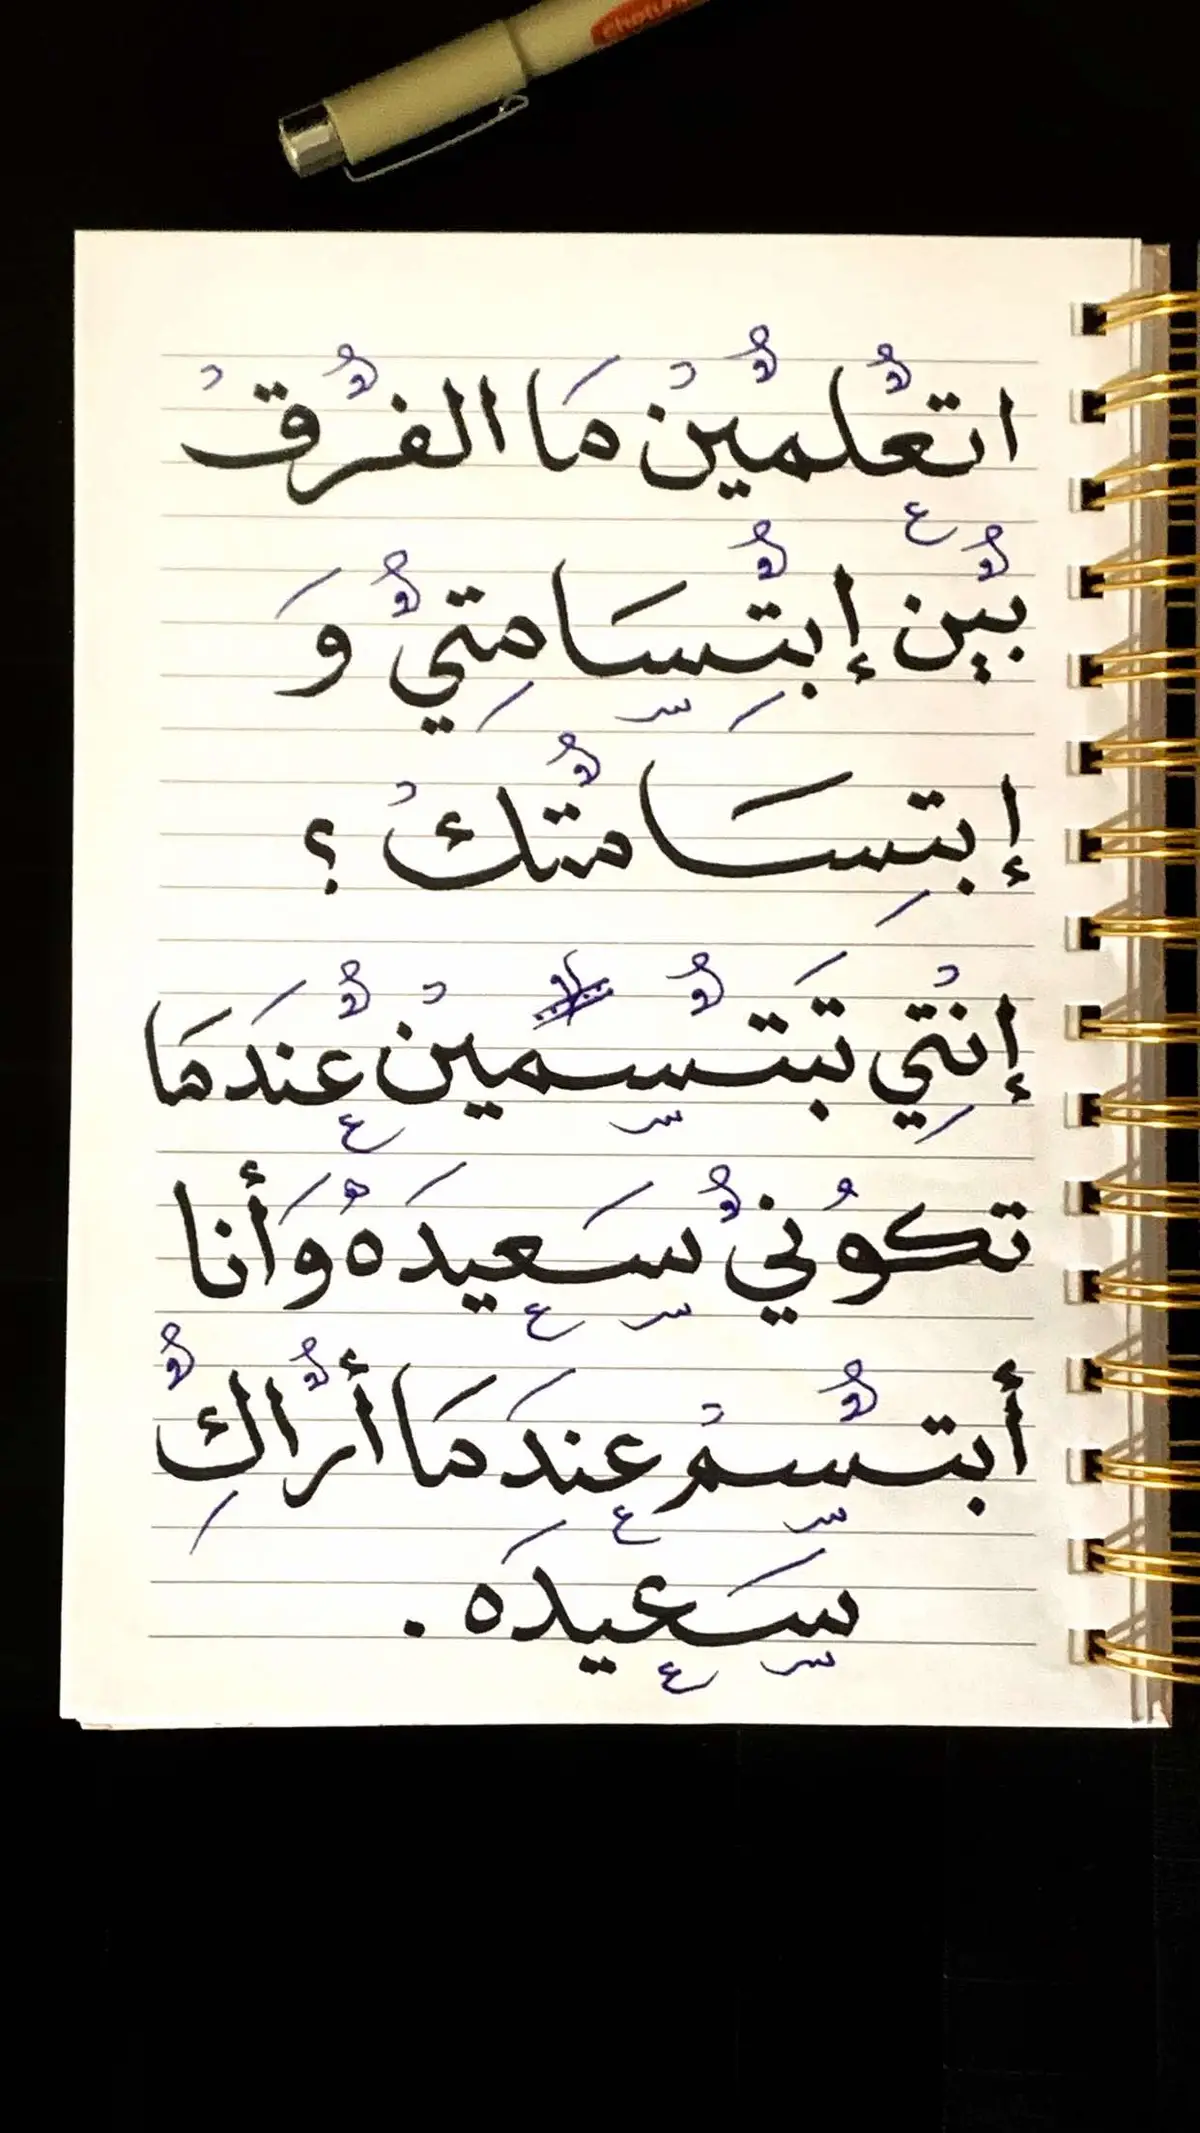 اتعلمين ما الفرق
بين إبتسامتي و
إبتسامتك ؟
إنتي تبتسمين عندما
تكوني سعيده وأنا
أبتسم عندما أراك
سعيده .